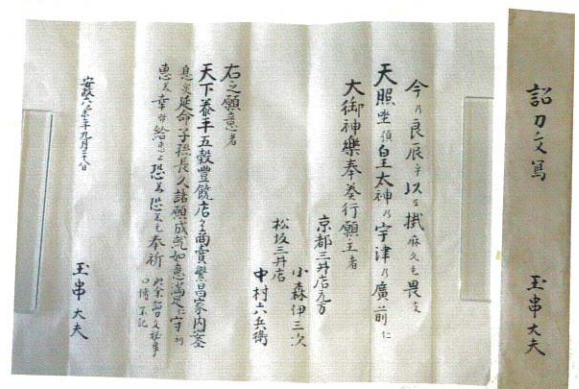 詔刀文写
玉串大夫
今乃良辰乎以弖掛麻久毛畏支
天照坐須皇太神乃宇津乃廣前仁
大御神樂奉奏行願主者
京都三井店元方
小森伊三次
松坂三井店
中村六兵衛
右之願意者
天下泰平五穀豊饒店々商賣繁昌家内安全
息災延命子孫長久諸願成就如意満足仁守利
恵美幸給恵止恐美恐美毛奉祈
口傳不記
玉串大夫